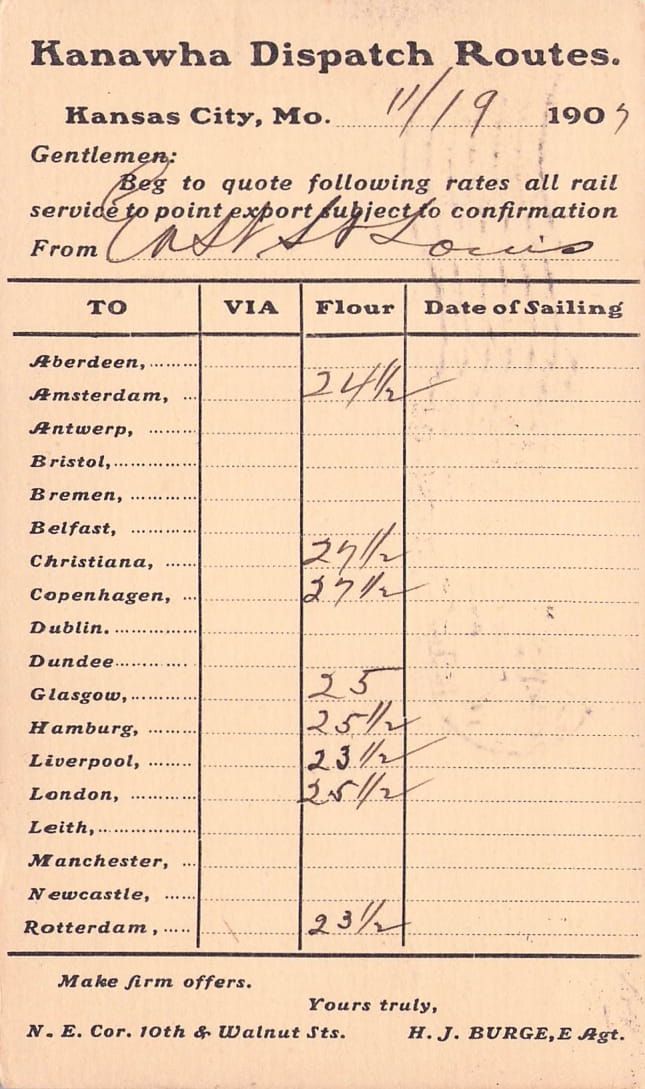 Kanawha Dispatch Routes.
Kansas City, Mo. 11/19 1907
Gentlemen:
Beg to quote following rates all rail
service to point export subject to confirmation
From East St Louis
TO VIA Flour Date of Sailing
Aberdeen,
Amsterdam, 24 1/2
Antwerp,
Bristol,
Bremen,
Belfast,
Christiana, 27 1/2
Copenhagen, 27 1/2
Dublin.
Dundee
Glasgow, 25
Hamburg, 25 1/2
Liverpool, 23 1/2
London, 25 1/2
Leith,
Manchester,
Newcastle,
Rotterdam, 23 1/2
Make firm offers.
Yours truly,
N. E. Cor. 10th & Walnut Sts. H. J. BURGE, E Agt.